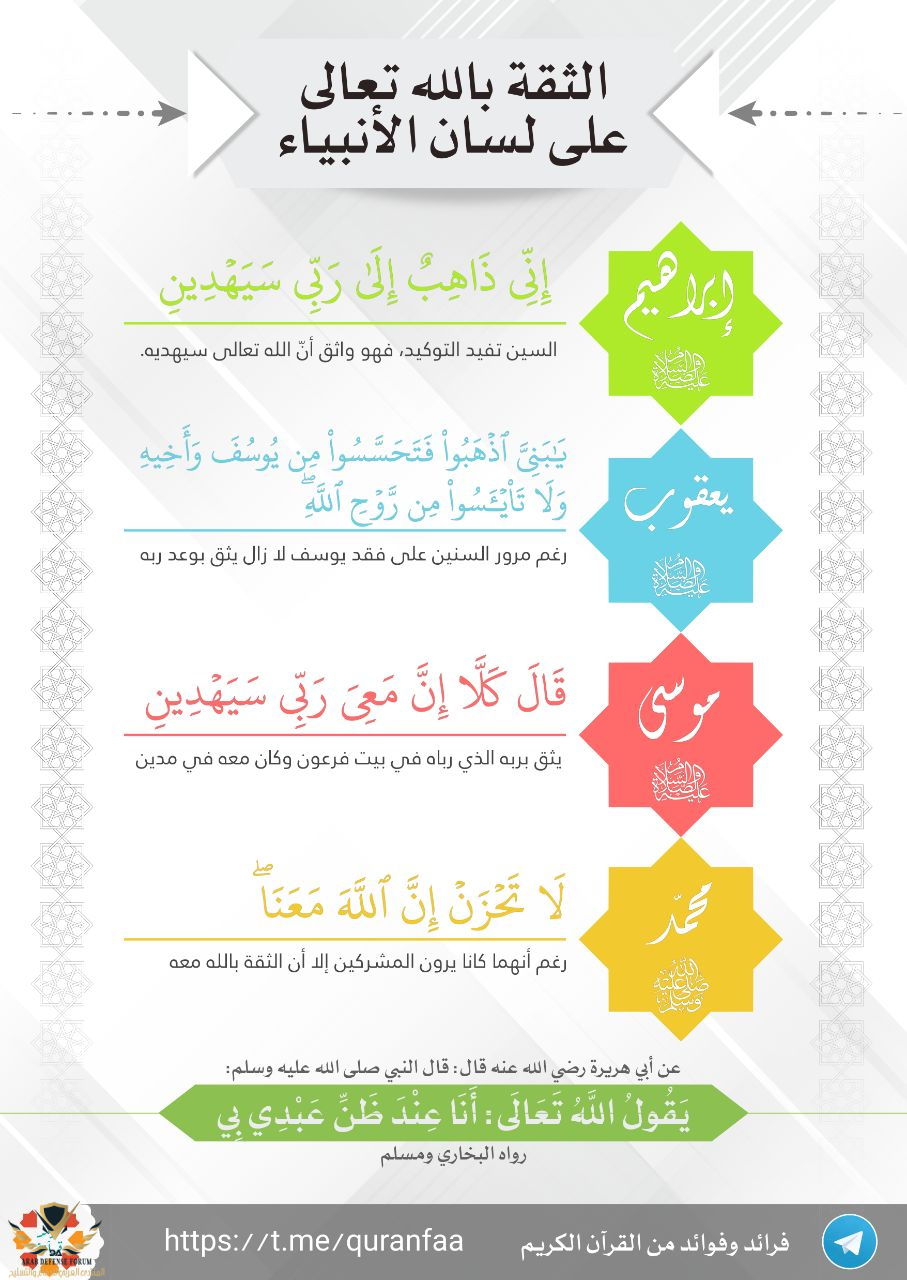 الثقة بالله تعالى
على لسان الأنبياء
إبراهيم
عليه الصلاة والسلام
إِنِّي ذَاهِبٌ إِلَىٰ رَبِّي سَيَهْدِينِ
السين تفيد التوكيد، فهو واثق أنّ الله تعالى سيهديه.
يعقوب
عليه الصلاة والسلام
يَٰبَنِيَّ ٱذْهَبُوا۟ فَتَحَسَّسُوا۟ مِن يُوسُفَ وَأَخِيهِ
وَلَا تَا۟يْـَٔسُوا۟ مِن رَّوْحِ ٱللَّهِۖ
رغم مرور السنين على فقد يوسف لا زال يثق بوعد ربه
موسى
عليه الصلاة والسلام
قَالَ كَلَّا إِنَّ مَعِيَ رَبِّي سَيَهْدِينِ
يثق بربه الذي رباه في بيت فرعون وكان معه في مدين
محمّد
صلى الله عليه وسلم
لَا تَحْزَنْ إِنَّ ٱللَّهَ مَعَنَاۖ
رغم أنهما كانا يرون المشركين إلا أن الثقة بالله معه
عن أبي هريرة رضي الله عنه قال: قال النبي صلى الله عليه وسلم:
يَقُولُ اللَّهُ تَعَالَى: أَنَا عِنْدَ ظَنِّ عَبْدِي بِي
رواه البخاري ومسلم
فرائد وفوائد من القرآن الكريم
https://t.me/quranfaa
ARAB DEFENSE FORUM
المنتدى العربي للدفاع والتسليح